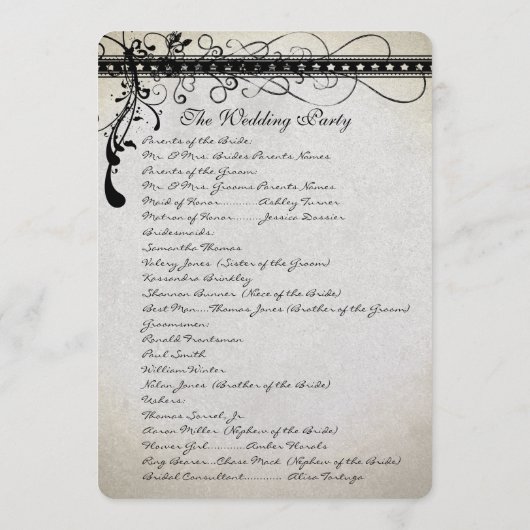 The Wedding Party
Parents of the Bride:
Mr. & Mrs. Brides Parents Names
Parents of the Groom:
Mr. & Mrs. Grooms Parents Names
Maid of Honor............Ashley Turner
Matron of Honor.........Jessica Dossier
Bridesmaids:
Samantha Thomas
Valery Jones (Sister of the Groom)
Kassandra Brinkley
Shannon Bunner (Niece of the Bride)
Best Man....Thomas Jones (Brother of the Groom)
Groomsmen:
Ronald Frontsman
Paul Smith
William Winter
Nolan Jones (Brother of the Bride)
Ushers:
Thomas Sorrel, Jr.
Aaron Miller (Nephew of the Bride)
Flower Girl............Amber Florals
Ring Bearer...Chase Mack (Nephew of the Bride)
Bridal Consultant............. Alisa Tortuga